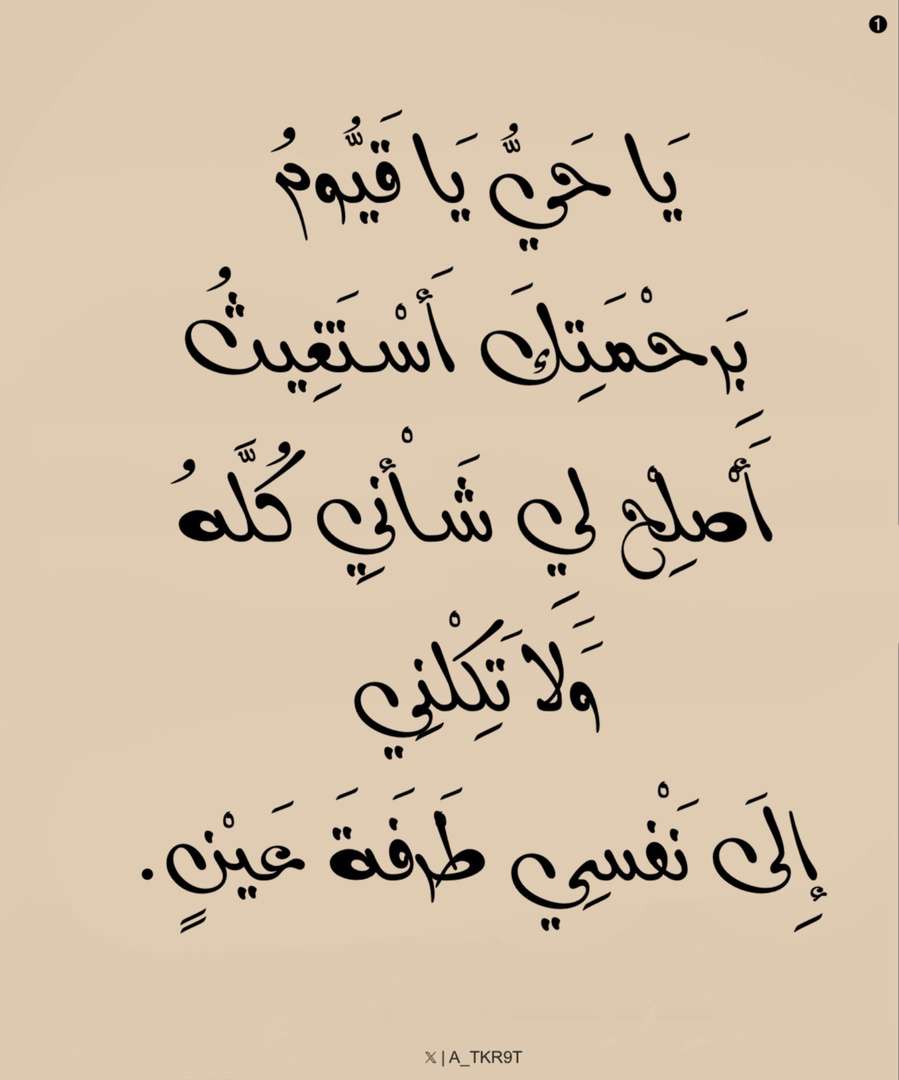 ❶
يَا حَيُّ يَا قَيُّومُ
بَرحْمَتِكَ أَسْتَغِيثُ
أَصْلِحْ لِي شَأْنِي كُلَّهُ
وَلَا تَكِلْنِي
إِلَى نَفْسِي طَرَفَةَ عَيْنٍ.
𝕏 | A_TKR9T